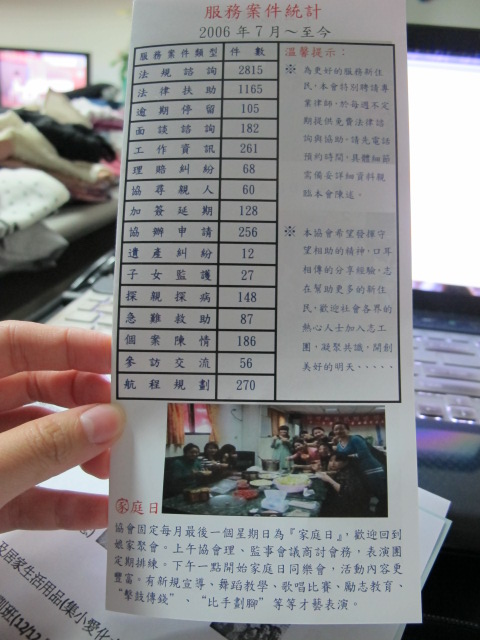 服務案件統計
2006 年 7 月～至今
服務案件類型 件 數
法規諮詢 2815
法律扶助 1165
逾期停留 105
面談諮詢 182
工作資訊 261
理賠糾紛 68
協尋親人 60
加簽延期 128
協辦申請 256
遺產糾紛 12
子女監護 27
探親探病 148
急難救助 87
個案陳情 186
參訪交流 56
航程規劃 270
溫馨提示：
※ 為更好的服務新住
民，本會特別聘請專
業律師，於每週不定
期提供免費法律諮
詢與協助，請先電話
預約時間，具體細節
需備妥詳細資料親
臨本會陳述。
※ 本協會希望發揮守
望相助的精神，口耳
相傳的分享經驗，志
在幫助更多的新住
民，歡迎社會各界的
熱心人士加入志工
團，凝聚共識，開創
美好的明天‥‥‥
家庭日
協會固定每月最後一個星期日為『家庭日』，歡迎回到
娘家聚會。上午協會理、監事會議商討會務，表演團
定期排練。下午一點開始家庭日同樂會，活動內容更
豐富。有新規宣導、舞蹈教學、歌唱比賽、勵志教育、
“擊鼓傳錢”、“比手劃腳”等等才藝表演。
及居家生活用品(集小愛化